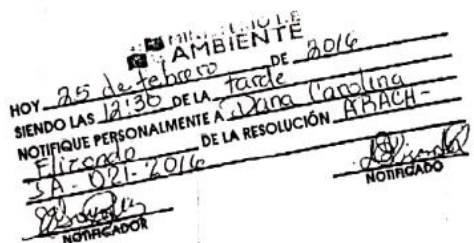 MINISTERIO DE
AMBIENTE
HOY 25 de febrero DE 2016
SIENDO LAS 12:30 DE LA tarde
NOTIFIQUE PERSONALMENTE A Dana Carolina
Elizondo DE LA RESOLUCIÓN ARACH-
IA-021-2016
NOTIFICADOR
NOTIFICADO